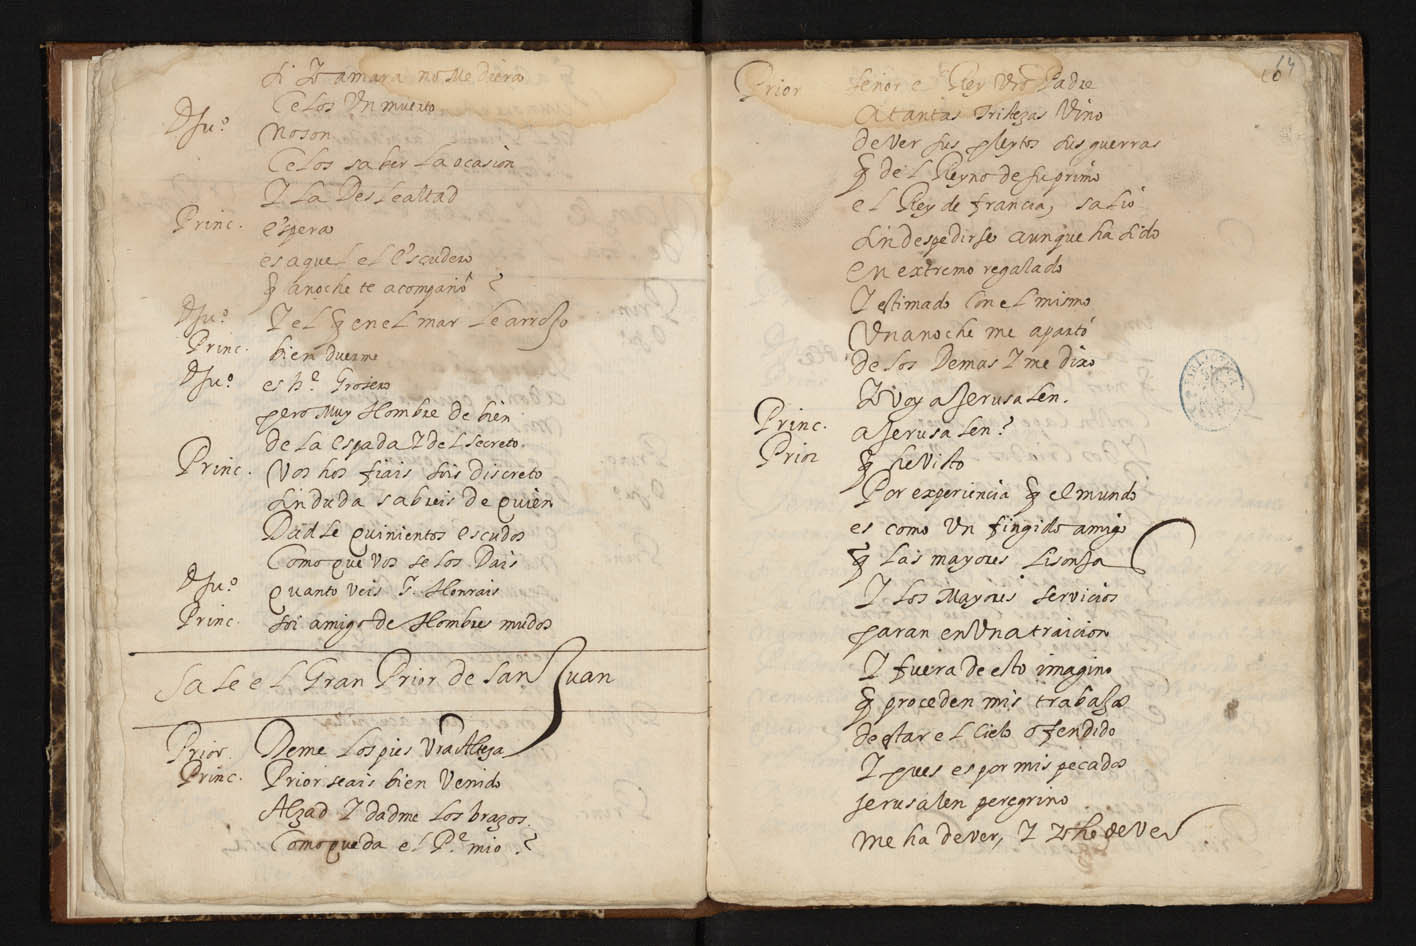 si Yo amara no Me diera
Celos Vn muerto
D Ju.º No son
Celos saber La ocasion
Y La DesLealtad
Princ. espera
es aquel el escudero
q̃ anoche te acompañó?
D Ju.º Y el q̃ en el mar le arrojo
Princ. bien duerme
D Ju.º es h.e Grosero
pero Muy Hombre de bien
de La espada Y del secreto.
Princ. Vos hos fiais sois discreto
sin duda sabreis de quien
Dadle quinientos escudos
Como que Vos se los Dais
D Ju.º quanto Veis S.r Honrais
Princ. soi amigo de Hombres mudos
Sale el Gran Prior de San Juan
Prior. Deme Los pies Vra Alteza
Princ. Prior seais bien Venido
Alzad Y dadme Los brazos.
Como queda el P.e mio?
64
Prior señor el Rey Vro Padre
A tantas tristezas Vino
de Ver sus pleytos sus guerras
q̃ del Reyno de su primo
el Rey de francia, salió
sin despedirse aunque ha sido
en extremo regalado
Y estimado Con el mismo
Vna noche me apartó
de los Demas Y me dixo
Yo Voy a Jerusalen.
Princ. a Jerusalen?
Prior q̃ he Visto
Por experiencia q̃ el mundo
es como Vn fingido amigo
q̃ Las mayores Lisonjas
Y Los Mayores servicios
paran en Vna traicion
Y fuera de esto imagino
q̃ proceden mis trabajos
de estar el Cielo ofendido
Y pues es por mis pecados
Jerusalen peregrino
me ha de ver, Y Yo he de Ver